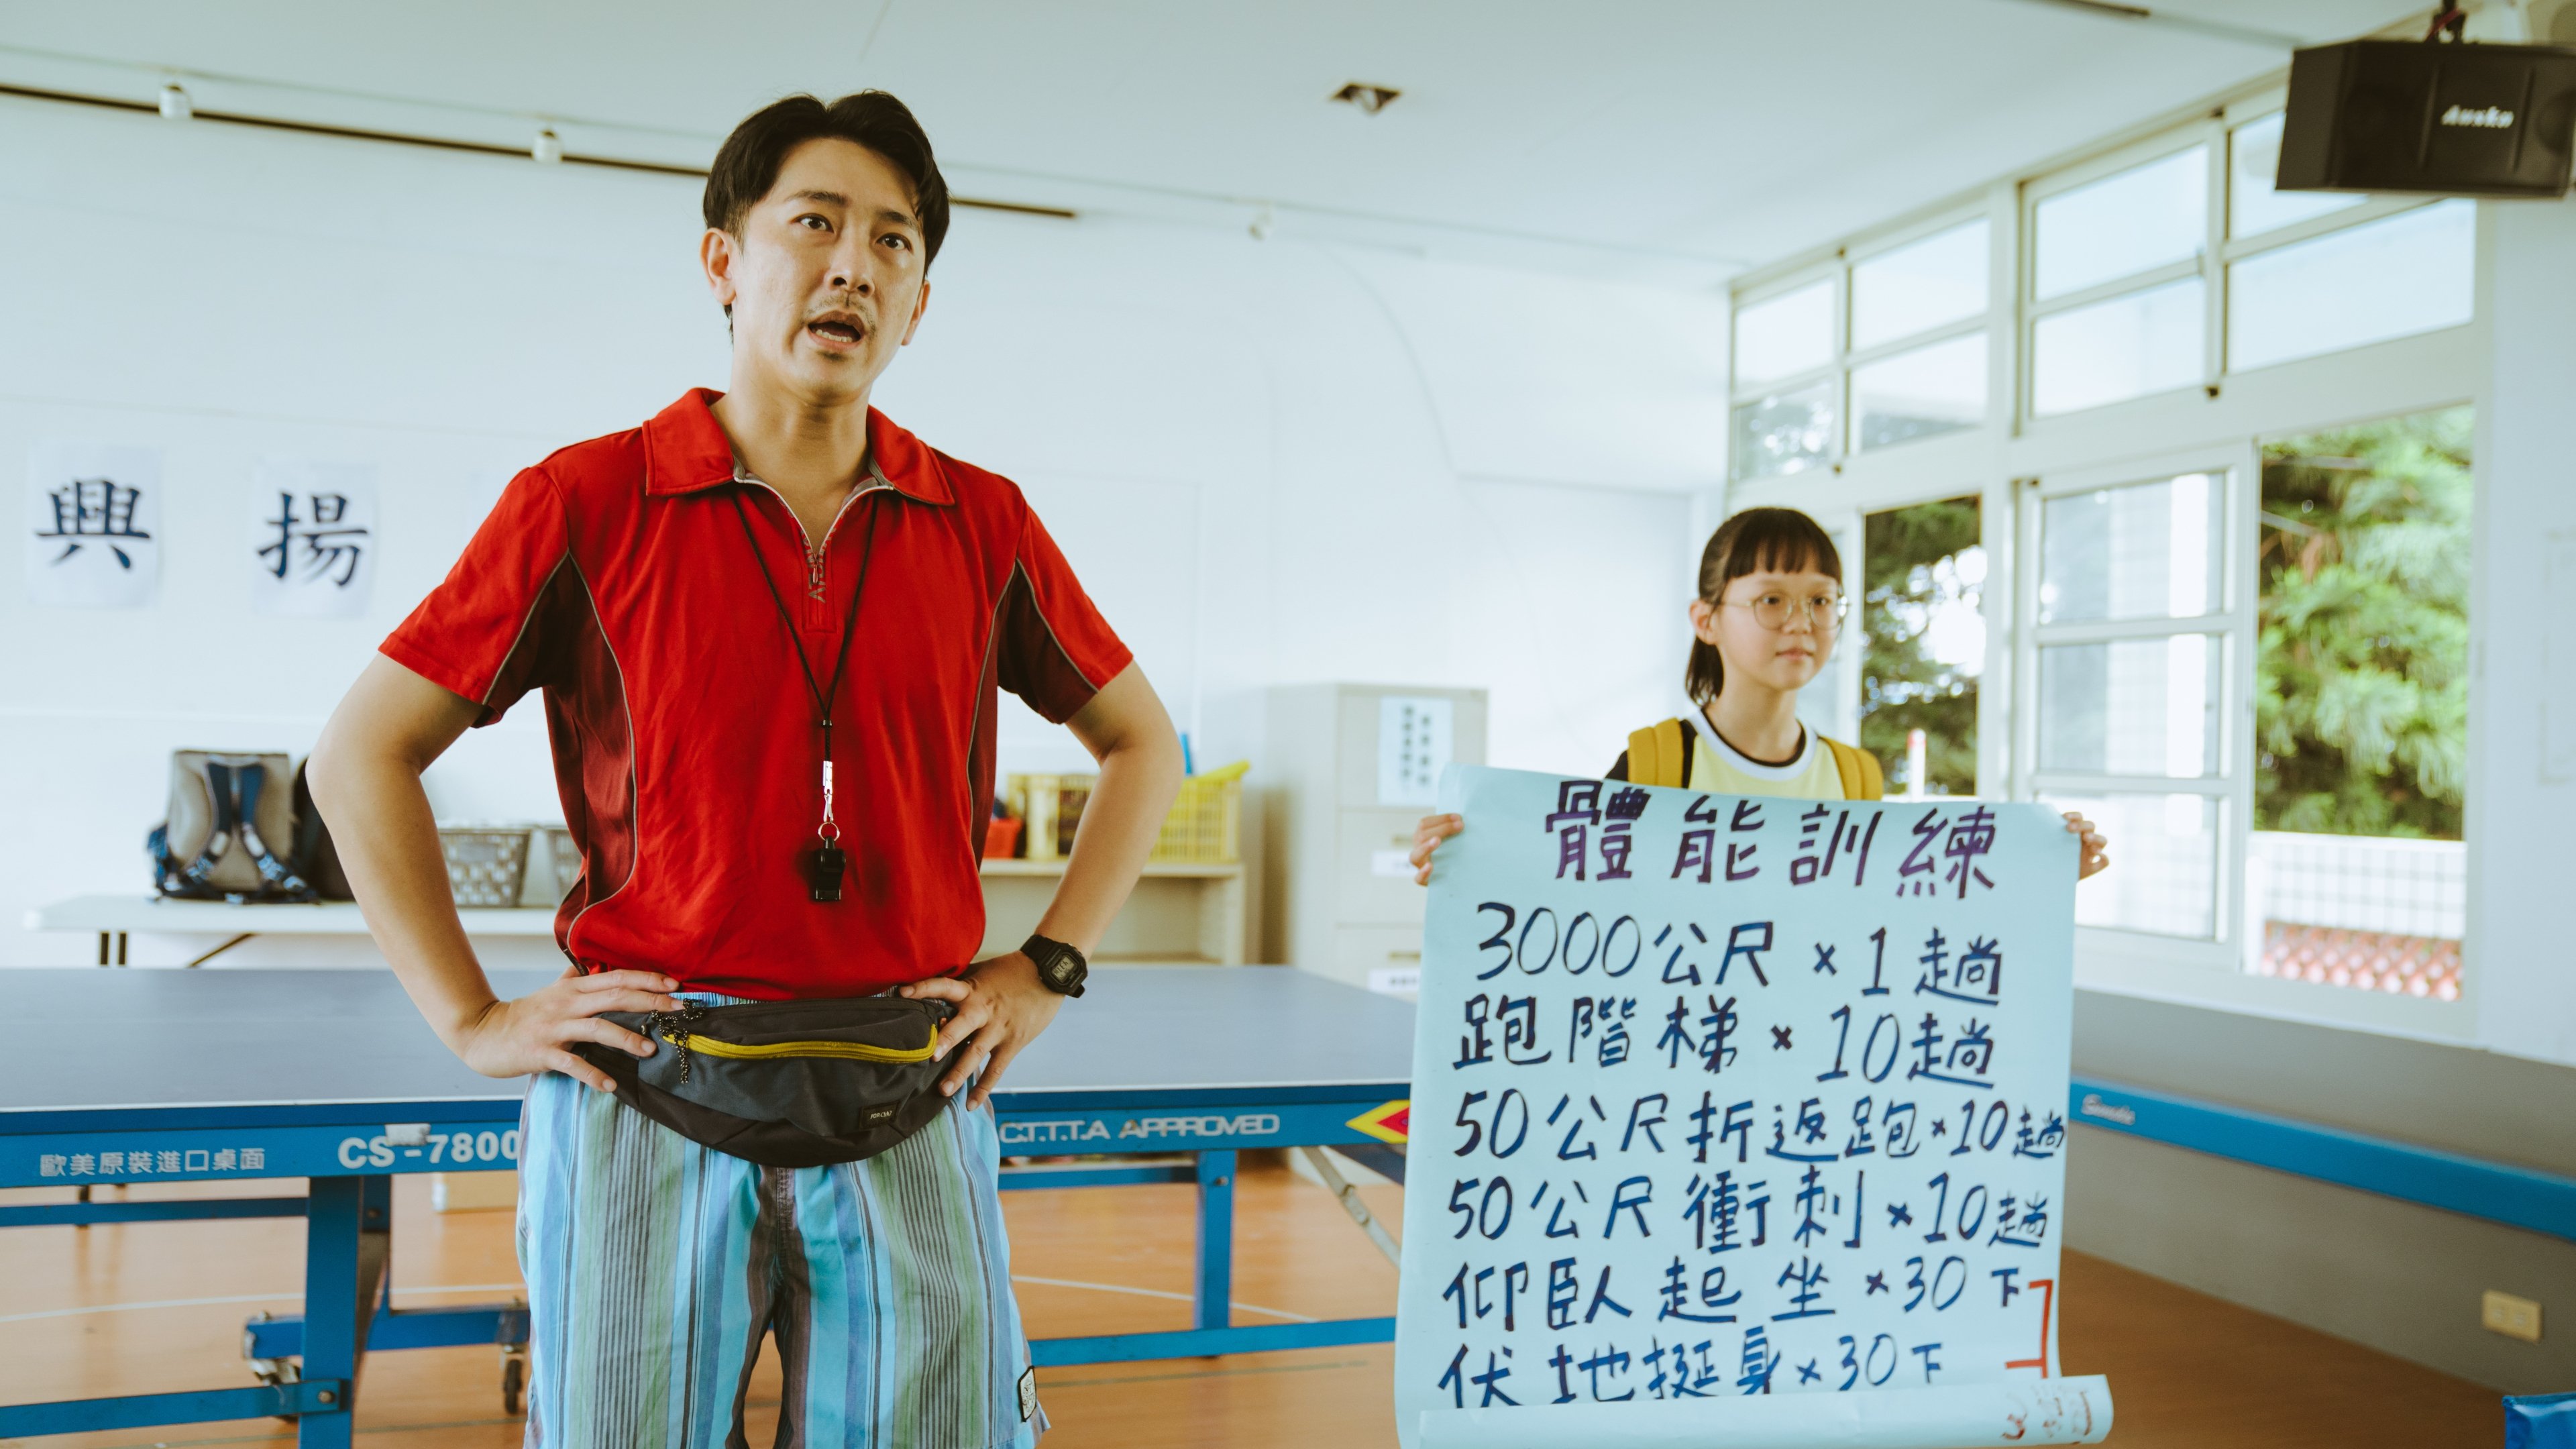 Ausku
興 揚
體能訓練
3000公尺×1趟
跑階梯×10趟
50公尺折返跑×10趟
50公尺衝刺×10趟
仰臥起坐×30下
伏地挺身×30下
歐美原裝進口桌面 CS-7800
C.T.T.T.A APPROVED